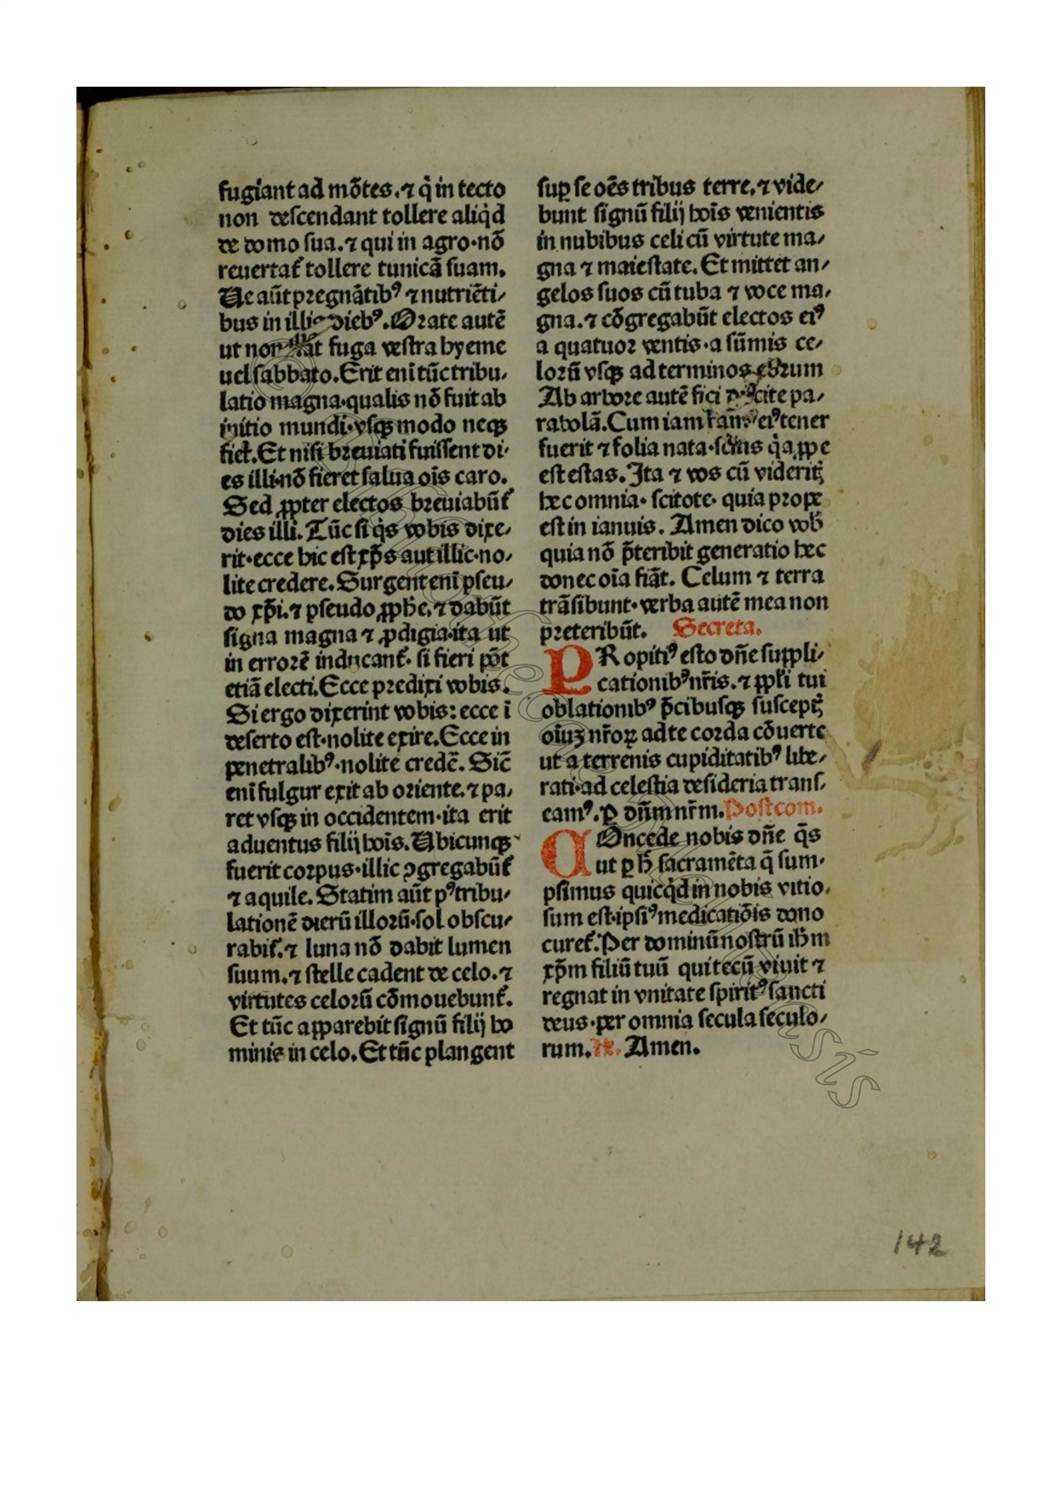 fugiant ad mōtes.⁊ q̇ in tecto
non descendant tollere aliq̇d
de domo sua.⁊ qui in agro·nō
reuertat᷑ tollere tunicā suam.
Ue aūt pregnātibꝰ ⁊ nutriēti⸗
bus in illis diebꝰ.Orate autē
ut non fiat fuga vestra hyeme
uel sabbato.Erit eni᷑ tūc tribu⸗
latio magna·qualis nō fuit ab
initio mundi·vsqꝫ modo neqꝫ
fiet᷑.Et nisi breuiati fuissent di⸗
es illi·nō fieret salua ois̄ caro.
Sed ꝓpter electos breuiabūt᷑
dies illi.Tūc si q̇s vobis dixe⸗
rit·ecce hic est xp̄s aut illic·no⸗
lite credere.Surgent eni᷑ pseu⸗
do xp̄i.⁊ pseudo ꝓph̄e.⁊ dabūt
signa magna ⁊ ꝓdigia·ita ut
in errorē inducant᷑· si fieri pōt
etiā electi.Ecce predixi vobis.
Si ergo dixerint vobis:ecce ī
deserto est·nolite exire.Ecce in
penetralibꝰ·nolite credē̄. Sic̄
eni᷑ fulgur exit ab oriente.⁊ pa⸗
ret vsqꝫ in occidentem·ita erit
aduentus filij hoīs.Ubicunqꝫ
fuerit corpus·illic ꝯgregabūt᷑
⁊ aquile. Statim aūt pꝰ tribu⸗
lationē dierū illorū·sol obscu⸗
rabit᷑.⁊ luna nō dabit lumen
suum.⁊ stelle cadent de celo.⁊
virtutes celorū cōmouebunt᷑.
Et tūc apparebit signū filij ho
minis in celo.Et tūc plangent
suꝑ se oēs tribus terre.⁊ vide⸗
bunt signū filij hoīs venientis
in nubibus celi cū virtute ma⸗
gna ⁊ maiestate. Et mittet an⸗
gelos suos cū tuba ⁊ voce ma⸗
gna.⁊ cōgregabūt electos eiꝰ
a quatuor ventis·a sūmis ce⸗
lorū vsqꝫ ad terminos eorum
Ab arbore autē fici discite pa⸗
rabolā.Cum iam ramꝰ eiꝰ tener
fuerit ⁊ folia nata·scitis q̇a ꝓpe
est estas. Ita ⁊ vos cū videritꝭ
hec omnia· scitote· quia prope
est in ianuis. Amen dico vob̄
quia nō p̄teribit generatio hec
donec oīa fiāt. Celum ⁊ terra
trāsibunt· verba autē mea non
preteribūt. Secreta.
PRopitiꝰ esto dn̄e suppli⸗
cationibꝰ nr̄is.⁊ ppl̄i tui
oblationibꝰ p̄cibusqꝫ susceptꝭ
oīuꝫ nr̄oꝝ ad te corda cōuerte
ut a terrenis cupiditatibꝰ libe⸗
rati·ad celestia desideria trans⸗
eamꝰ.ꝑ dn̄m nr̄m. Postcom.
COncede nobis dn̄e q̄s
ut ꝑ h̄ sacramēta q̄ sum⸗
psimus quicq̇d in nobis vitio⸗
sum est·ipsiꝰ medicatiōis dono
curet᷑.Per dominū nostrū ih̄m
xp̄m filiū tuū qui tecū viuit ⁊
regnat in vnitate spiritꝰ sancti
deus·per omnia secula seculo⸗
rum. R̄. Amen.
142